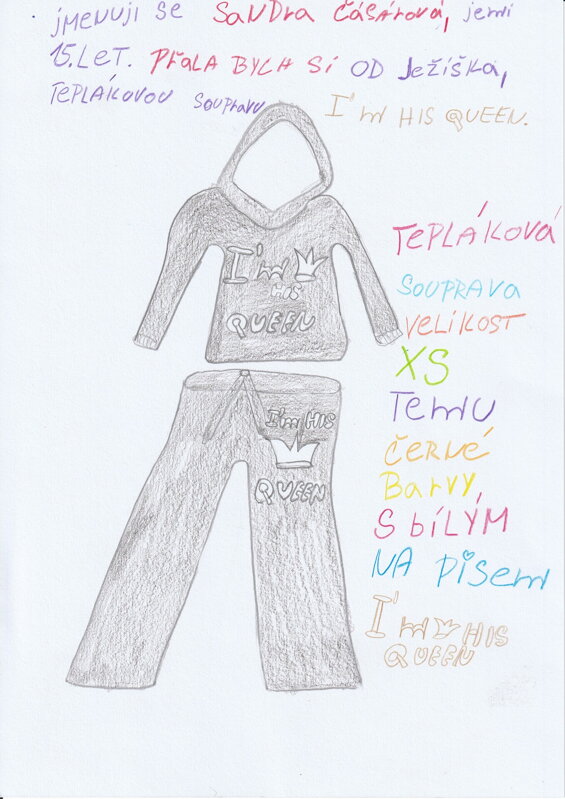 jmenuji se Sandra Čásárová, jemi
15.let. Přala bych si od Ježíška,
teplákovou soupravu I'm HIS QUEEN.
I'm
HIS
QUEEN
I'm HIS
QUEEN
Tepláková
souprava
velikost
XS
Temu
černé
Barvy,
S bílým
NA Pisem
I'm HIS
QUEEN